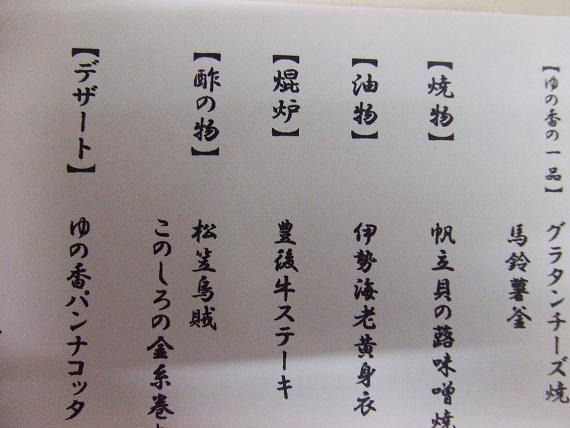 【ゆの香の一品】
グラタンチーズ焼
馬鈴薯釜
【焼物】
帆立貝の蕗味噌焼
【油物】
伊勢海老黄身衣
【焜炉】
豊後牛ステーキ
【酢の物】
松笠烏賊
このしろの金糸巻
【デザート】
ゆの香パンナコッタ